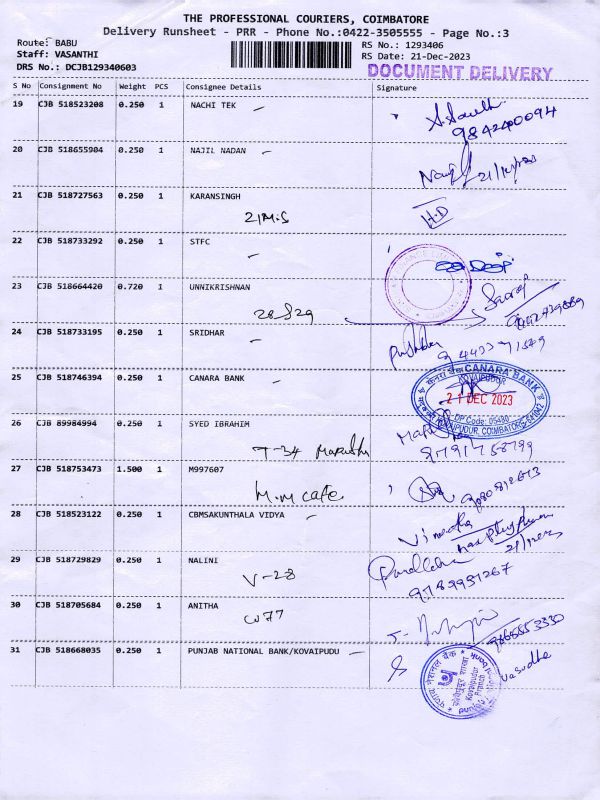 THE PROFESSIONAL COURIERS, COIMBATORE
Delivery Runsheet - PRR - Phone No.:0422-3505555 - Page No.:3
Route: BABU
Staff: VASANTHI
DRS No.: DCJB129340603
RS No.: 1293406
RS Date: 21-Dec-2023
DOCUMENT DELIVERY
S No Consignment No Weight PCS Consignee Details Signature
19 CJB 518523208 0.250 1 NACHI TEK
9842400094
20 CJB 518655904 0.250 1 NAJIL NADAN
21 CJB 518727563 0.250 1 KARANSINGH
21M.S H.D
22 CJB 518733292 0.250 1 STFC
23 CJB 518664420 0.720 1 UNNIKRISHNAN
24 CJB 518733195 0.250 1 SRIDHAR
25 CJB 518746394 0.250 1 CANARA BANK
केनरा बैंक CANARA BANK
KOVAIPUDUR
21 DEC 2023
DP Code: 05480
KOVAIPUDUR, COIMBATORE-641042
26 CJB 89984994 0.250 1 SYED IBRAHIM
T-34
27 CJB 518753473 1.500 1 M997607
M.M cafe
28 CJB 518523122 0.250 1 CBMSAKUNTHALA VIDYA
29 CJB 518729829 0.250 1 NALINI
V-28
30 CJB 518705684 0.250 1 ANITHA
31 CJB 518668035 0.250 1 PUNJAB NATIONAL BANK/KOVAIPUDU
Kovaipudur
Branch
Vasudha